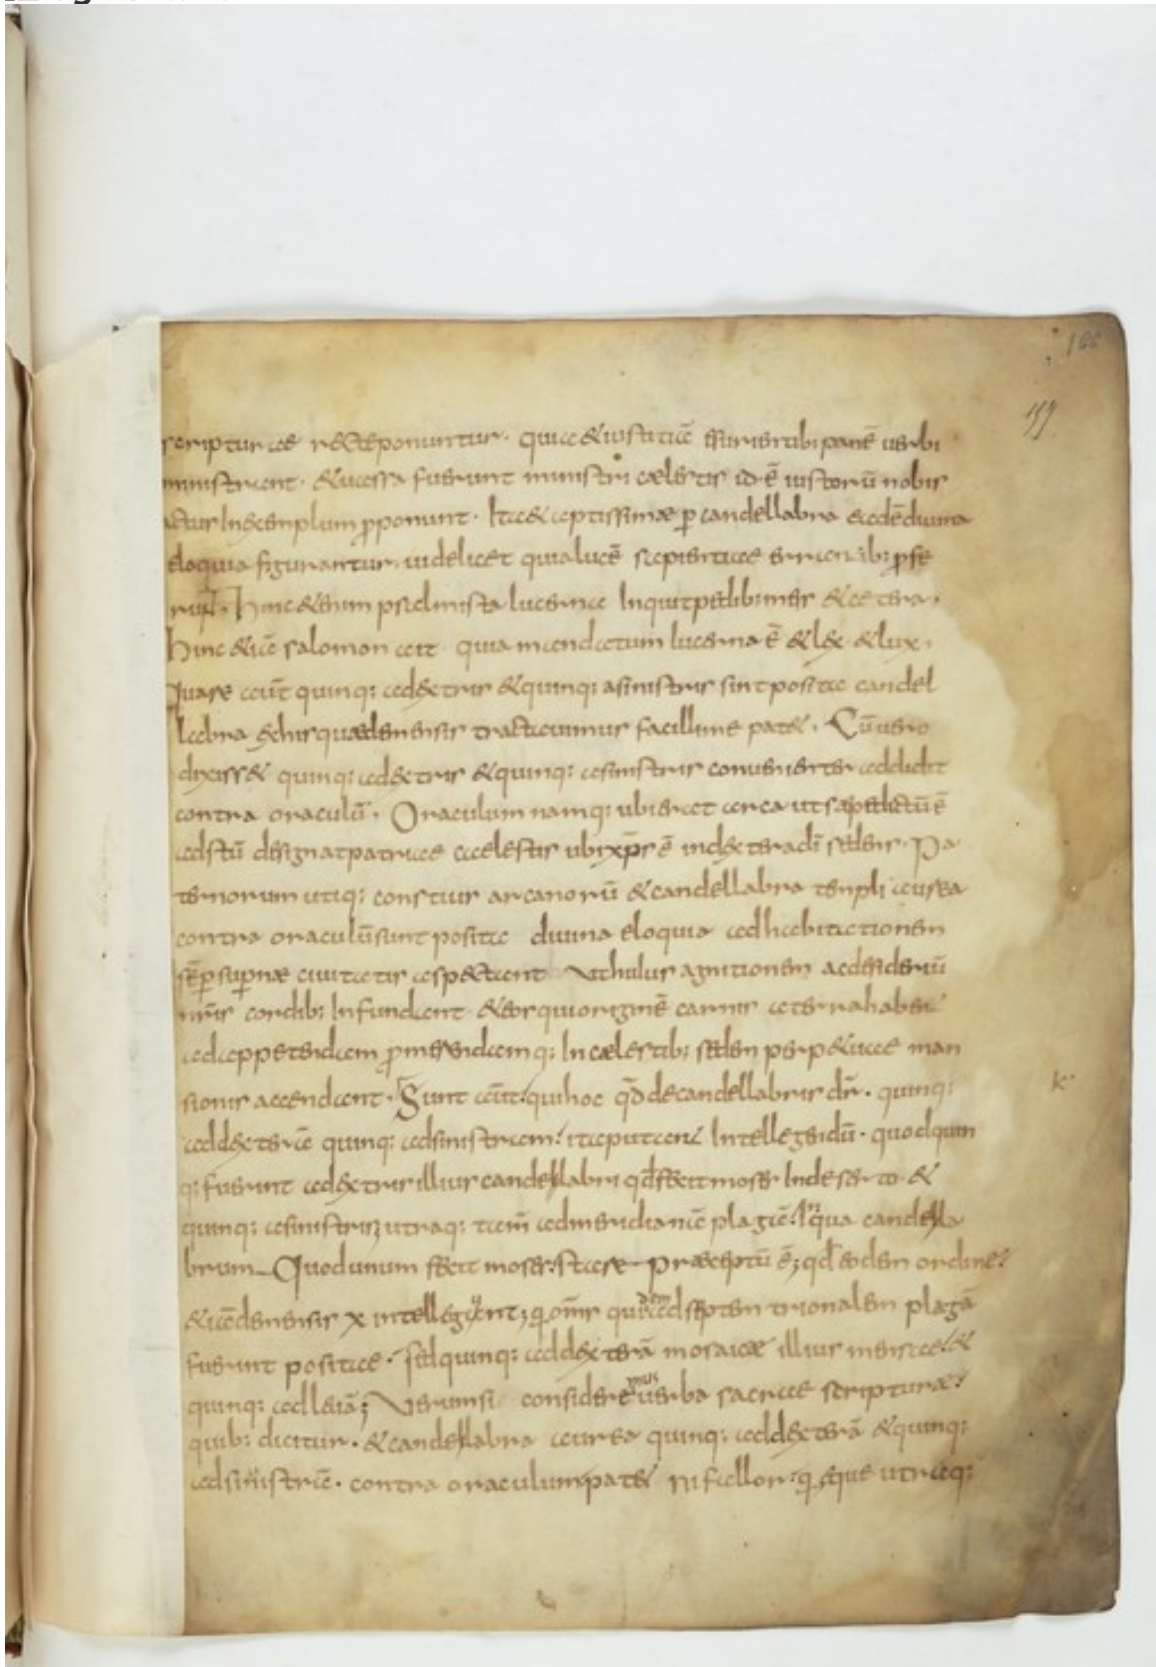 186
157
scripturae recte ponuntur. quia & iustitiã esurientibi panẽ uerbi
ministrant. & uessa fuerunt ministri caelestis id ẽ iustorũ nobis
actus In exemplum proponunt. Ita & aptissimae p candellabra eadẽ diuina
eloquia figurantur. uidelicet quia lucẽ sapientiae errantib: pfe
runt. Hinc & enim psalmista lucerna Inquit pedib: meis & cetera.
hinc & iã salomon ait quia mandatum lucerna ẽ & lex & lux.
Quare aut̃ quinq: a dextris & quinq: a sinistris sint posita candel
labra ex his quae de mensis tractauimus facillime pat&. Cũ uero
dixiss& quinq: a dextris & quinq: a sinistris conuenienter addidit
contra oraculũ. Oraculum namq: ubi erat arca ut sape dictũ ẽ
adytũ designat patriae caelestis ubi xp̃s ẽ in dextera dĩ sedens. Pa
ternorum utiq: conscius arcanorũ & candellabra templi aurea
contra oraculũ sunt posita diuina eloquia ad habitationem
sẽp supnae ciuitatis aspectant Vt huius agnitionem ac desideriũ
nr̃is cordib: Infundant & eos qui originẽ carnis a terra habent
ad appetendam pmerendamq: In caelestib: sedem perp&uae man
sionis accendant. Sunt aut̃ qui hoc qd̃ de candellabris dr̃. quinq:
ad dexterã quinq: ad sinistram. ita putent Intellegendũ. quod quin
q: fuerunt ad dextris illius candellabri qd̃ fecit moses In deserto. &
quinq: a sinistris utraq: tam̃ ad meridianã plagã. In qua candella
brum Quod unum fecit moses. stare praeceptũ ẽ; qd̃ eodem ordine.
& iã de mensis x intellegunt; qõms qui dem ad septem trionalem plagã
fuerunt positae. sed quinq: ad dexterã mosaicae illius mensae. &
quinq: ad leuã; Verum si consideremus uerba sacrae scripturae.
quib: dicitur. & candellabra aurea quinq: ad dexterã & quinq:
k.
ad sinistrã. contra oraculum pat& ni fallor. q, eque utraq: